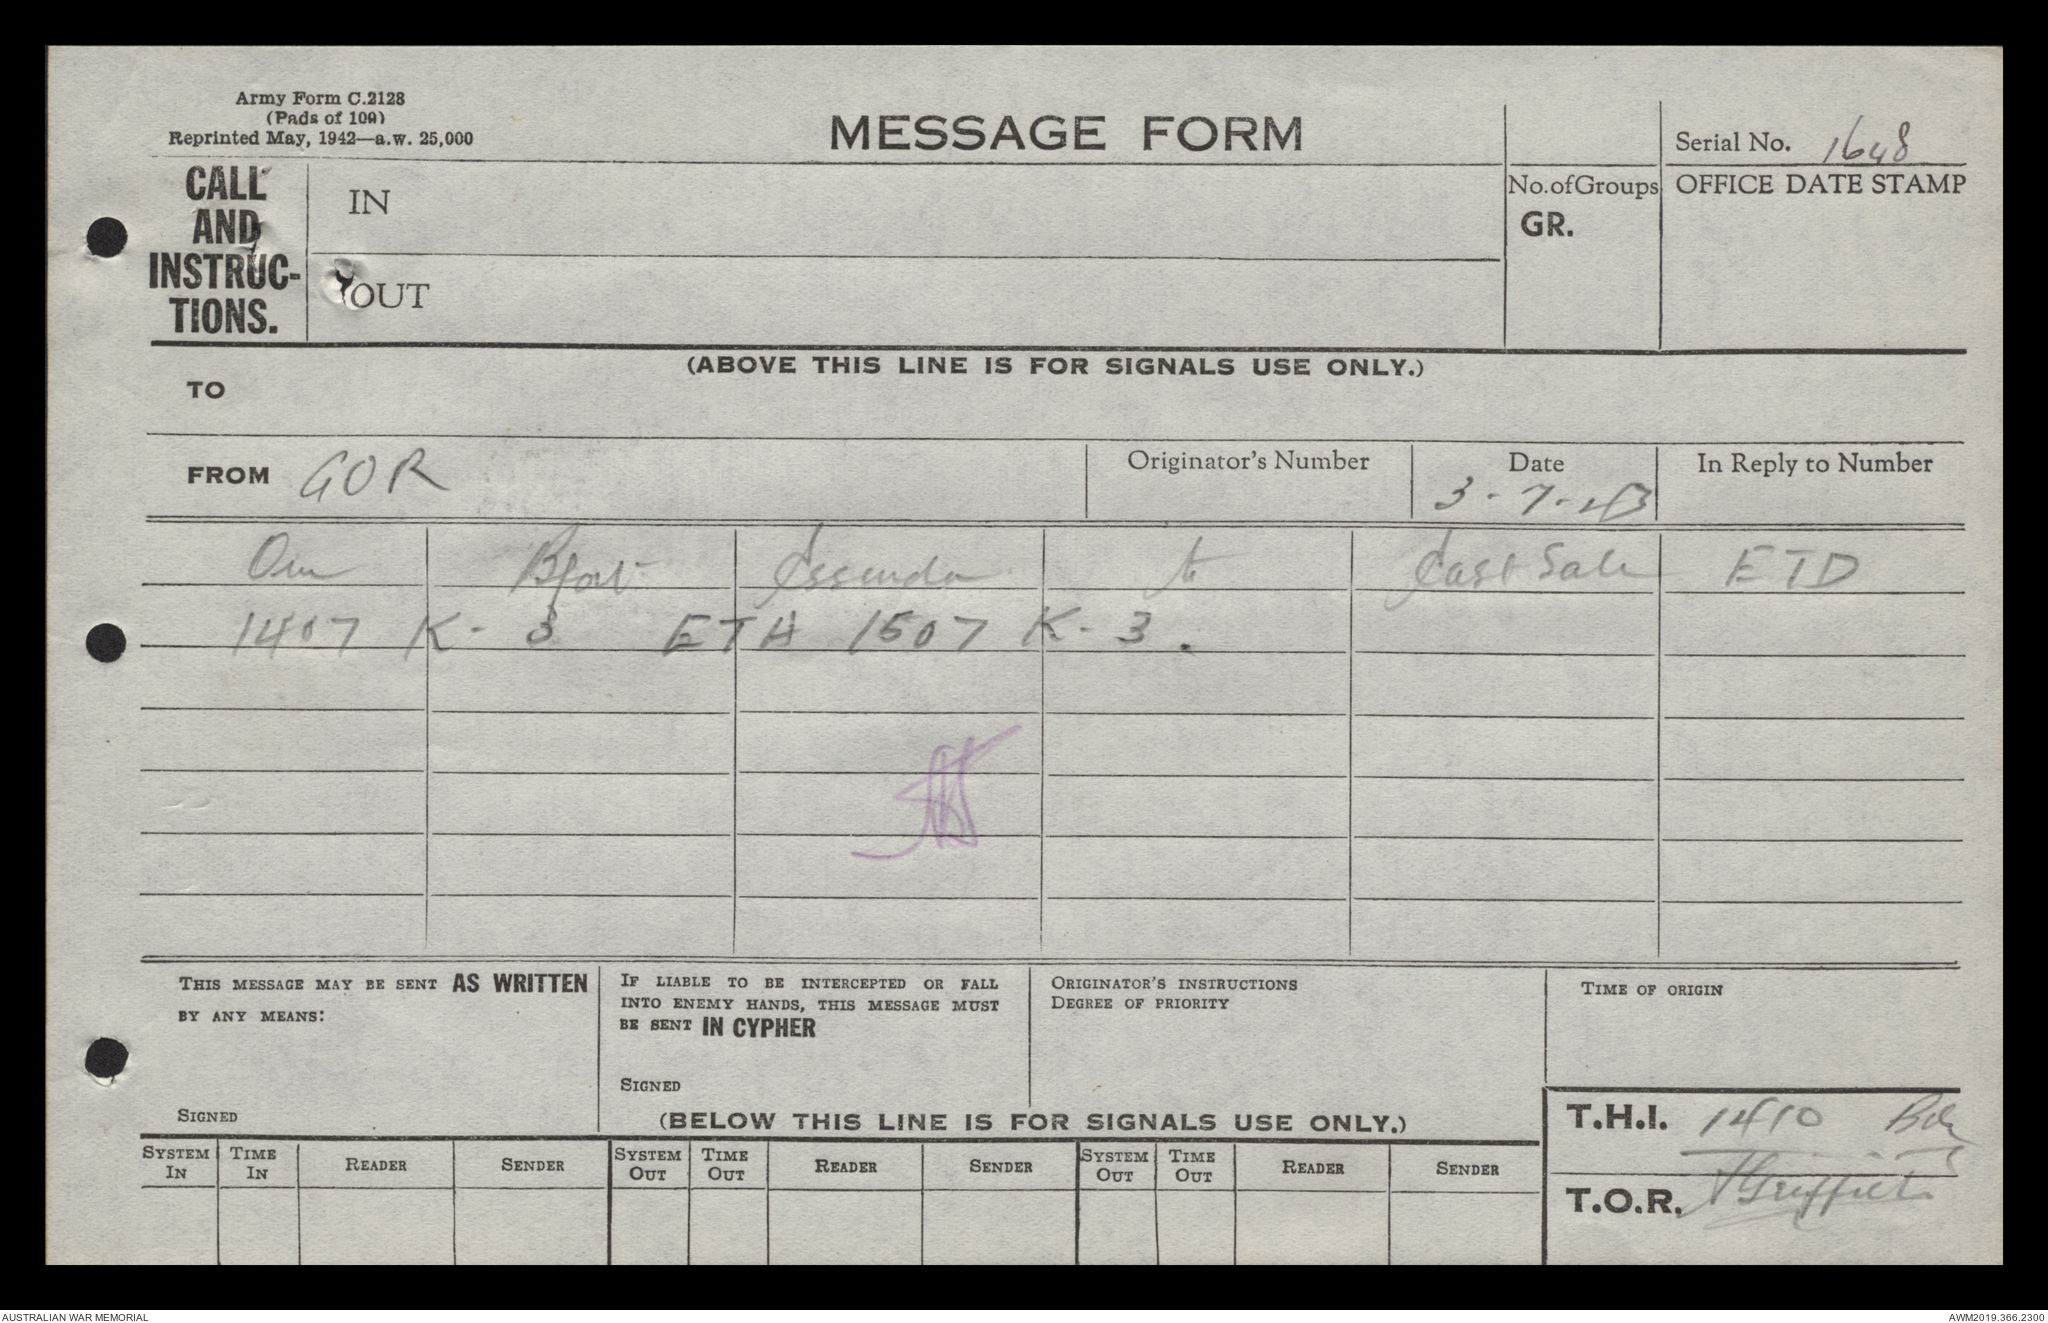 Army Form C.2128
(Pads of 100)
Reprinted May, 1942—a.w. 25,000
MESSAGE FORM
Serial No. 1648
CALL AND INSTRUC-TIONS.
IN
OUT
No. of Groups
GR.
OFFICE DATE STAMP
(ABOVE THIS LINE IS FOR SIGNALS USE ONLY.)
TO
FROM GOR
Originator's Number
Date
3-7-43
In Reply to Number
One Bfort Essendon to East Sale ETD
1407 K-3 ETA 1507 K-3.
THIS MESSAGE MAY BE SENT AS WRITTEN
BY ANY MEANS:
SIGNED
IF LIABLE TO BE INTERCEPTED OR FALL
INTO ENEMY HANDS, THIS MESSAGE MUST
BE SENT IN CYPHER
SIGNED
ORIGINATOR'S INSTRUCTIONS
DEGREE OF PRIORITY
TIME OF ORIGIN
(BELOW THIS LINE IS FOR SIGNALS USE ONLY.)
T.H.I. 1410
T.O.R. Griffith
SYSTEM IN
TIME IN
READER
SENDER
SYSTEM OUT
TIME OUT
READER
SENDER
SYSTEM OUT
TIME OUT
READER
SENDER
AUSTRALIAN WAR MEMORIAL
AWM2019.366.2300